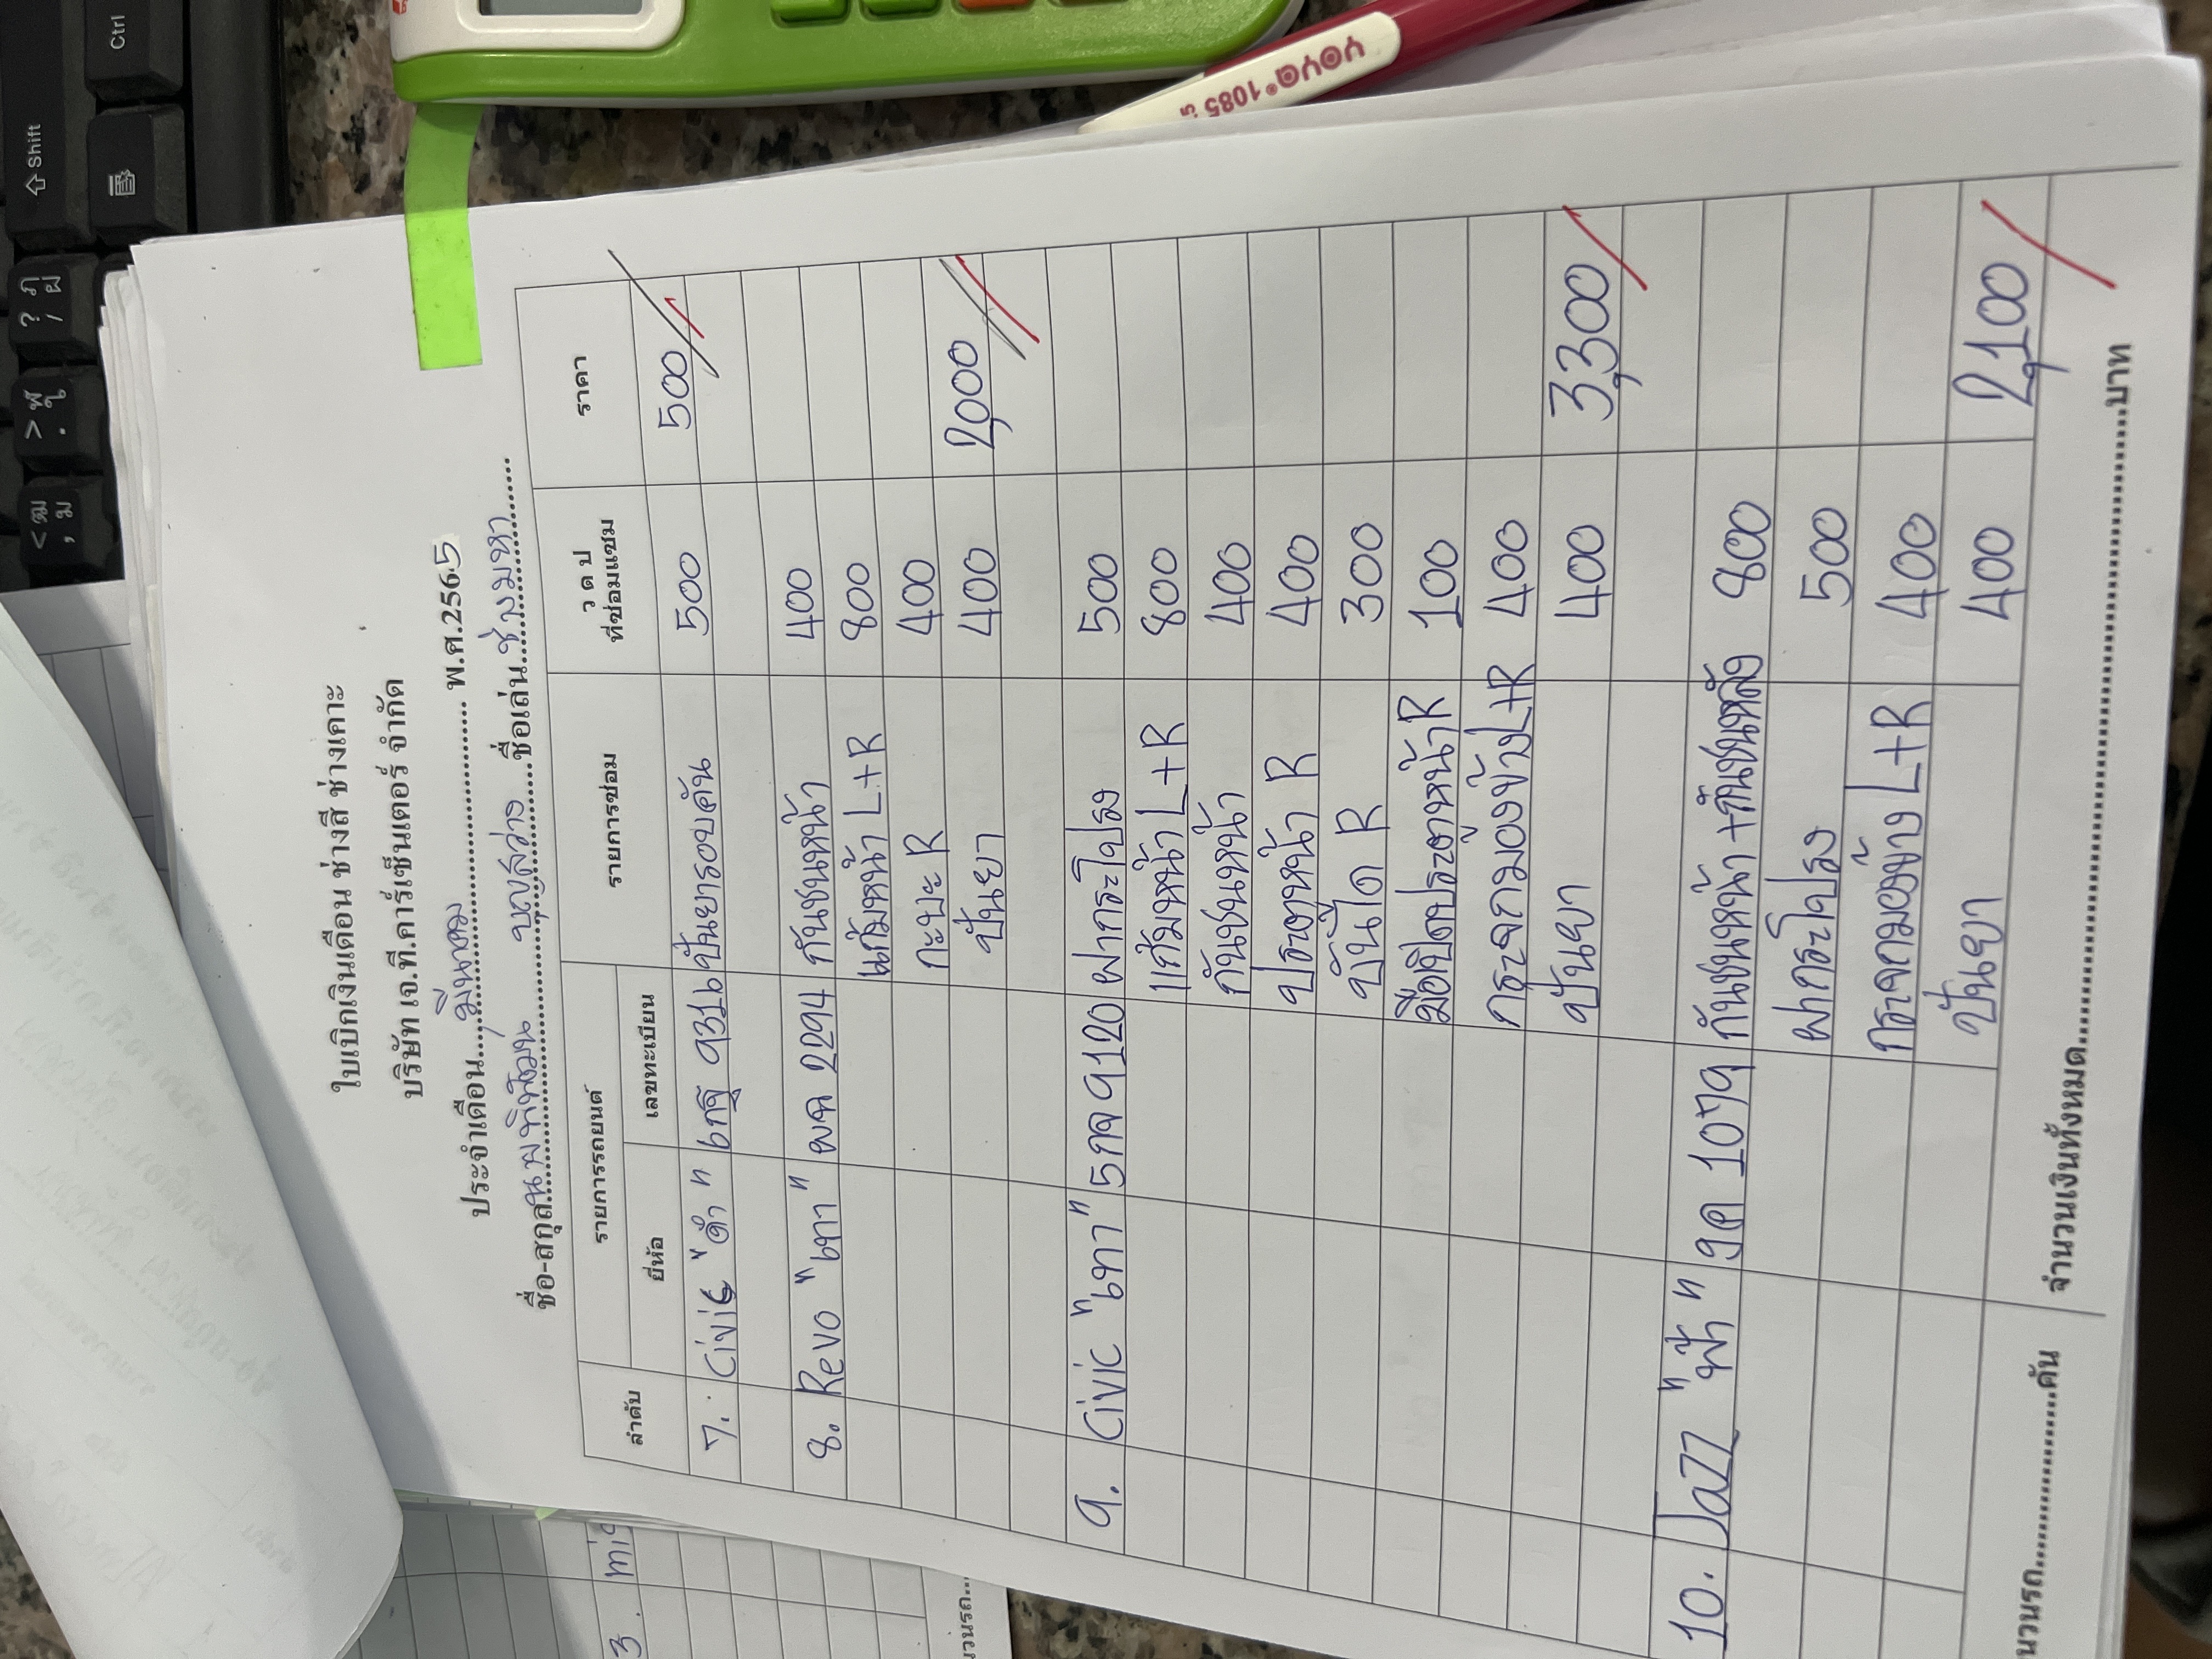 ใบเบิกเงินเดือน ช่างสี ช่างเคาะ
บริษัท เจ.ที.คาร์เซ็นเตอร์ จำกัด
ประจำเดือน....มีนาคม.... พ.ศ.2565
ชื่อ-สกุล บุญสว่าง ชื่อเล่น ช่างมหา
ลำดับ รายการรถยนต์ รายการซ่อม ว ด ป ที่ซ่อมแซม ราคา
ยี่ห้อ เลขทะเบียน
7. Civic "ดำ" 6กฐ 9316 ปั่นยารอบคัน 500 500
8. Revo "เทา" ผฉ 2294 กันชนหน้า 400
แก้มหน้า L+R 800
กะบะ R 400
ปั่นยา 400 2,000
9. Civic "เทา" 5กจ 9120 ฝากระโปรง 500
แก้มหน้า L+R 800
กันชนหน้า 400
ประตูหน้า R 400
บันได R 300
มือเปิดประตูหน้า R 100
กระจกมองข้าง L+R 400
ปั่นยา 400 3,300
10. Jazz "ฟ้า" 1079 กันชนหน้า+กันชนหลัง 800
ฝากระโปรง 500
กระจกมองข้าง L+R 400
ปั่นยา 400 2,100
นวนรถ....คัน จำนวนเงินทั้งหมด....บาท
3. mi
นวนรถ...
Ctrl
Shift
YOYA 1085